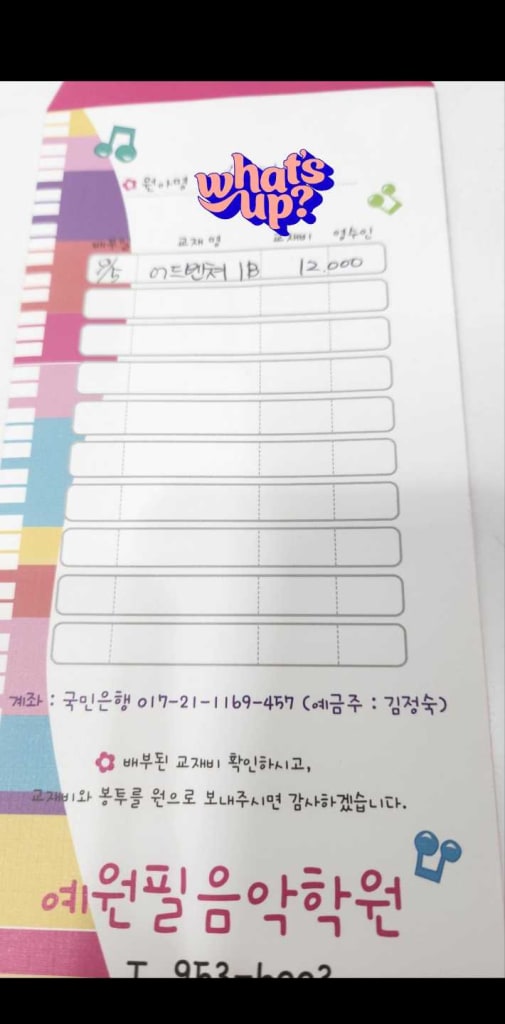 원아명
what's up?
배부일 교재명 교재비 영수인
9/5 어드벤쳐 1B 12.000
계좌 : 국민은행 017-21-1169-457 (예금주 : 김정숙)
배부된 교재비 확인하시고,
교재비와 봉투를 원으로 보내주시면 감사하겠습니다.
예원필음악학원
T. 953-6003